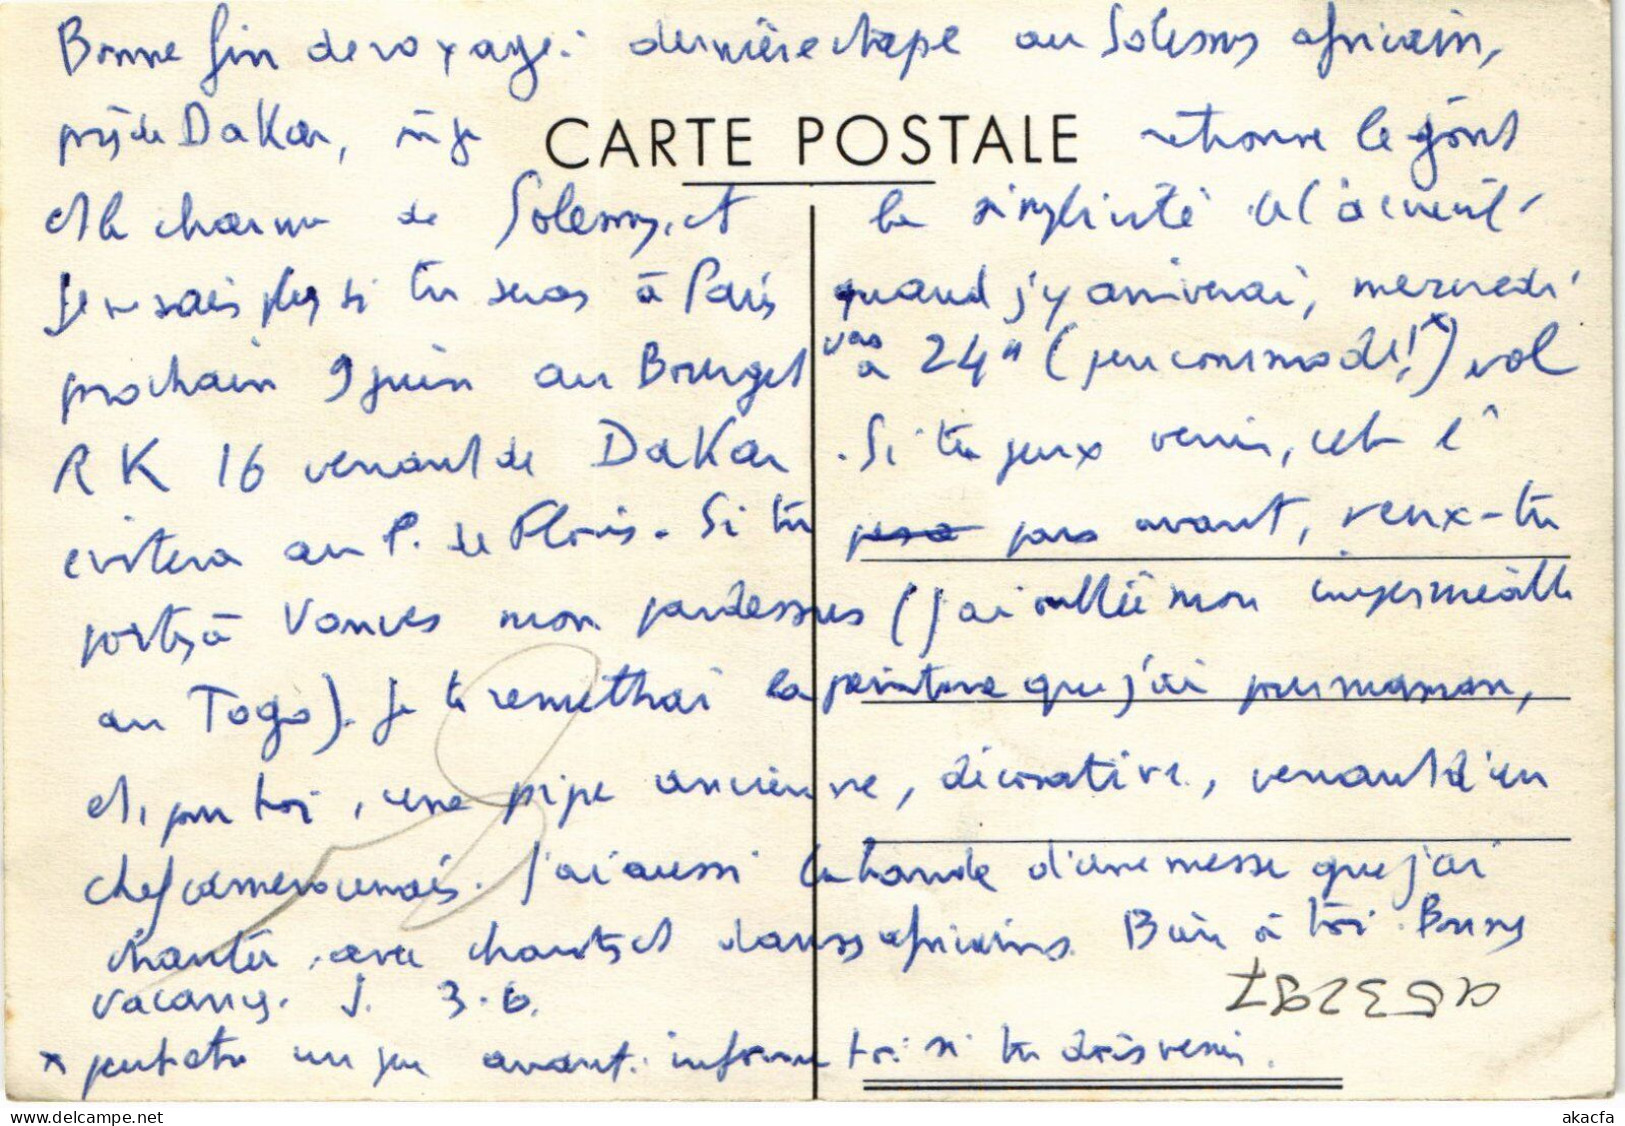 Bonne fin de voyage: dernière étape au Solesmes africain,
près de Dakar, où je retrouve le goût
CARTE POSTALE
et le charme de Solesmes, et la simplicité de l'accueil.
Je ne sais pas si tu seras à Paris quand j'y arriverai, mercredi
prochain 9 juin au Bourget vers à 24h (peu commode!x) vol
RK 16 venant de Dakar. Si tu peux venir, cela l'
évitera au P. de Plouis. Si tu peux pas avant, veux-tu
porter à Vanves mon pardessus (j'ai oublié mon imperméable
au Togo). Je te remettrai la peinture que j'ai pour maman,
et, pour toi, une pipe ancienne, décorative, venant d'un
chef camerounais. J'ai aussi la bande d'une messe que j'ai
chantée avec chants et danses africains. Bien à toi. Bonnes
vacances. J. 3.6.
a53297
x peut-être un peu avant: informe toi si tu dois venir.
www.delcampe.net
akacfa